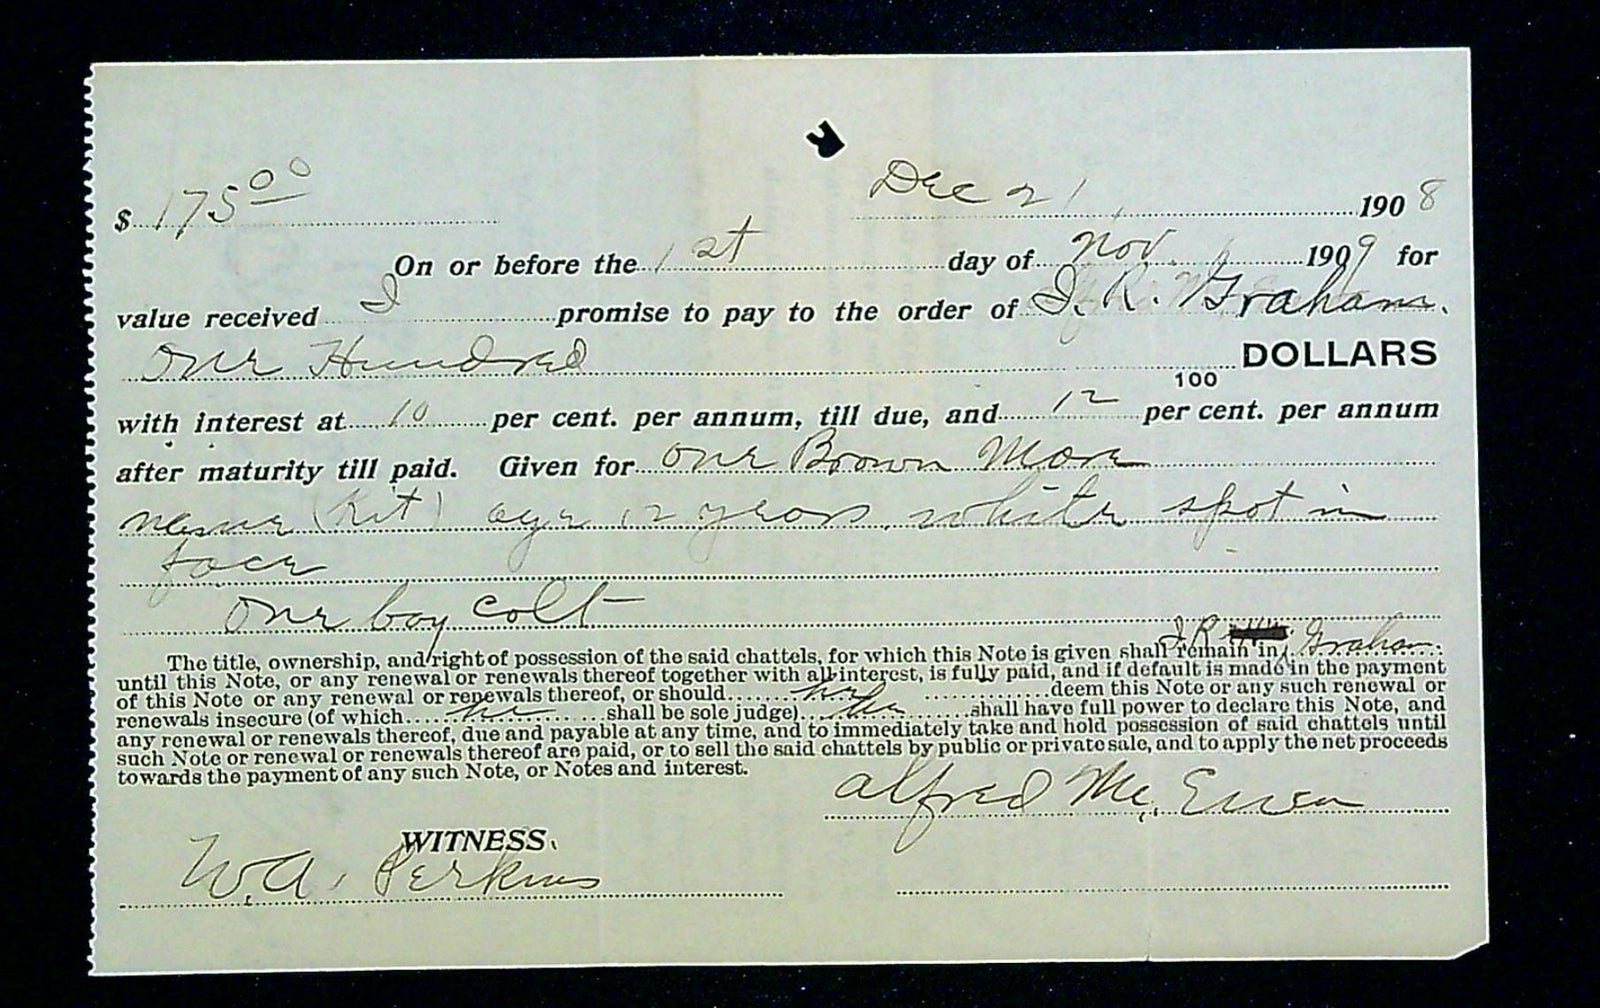 Dec 21 1908
$ 175 00
On or before the 1 st day of Nov. 1909 for
value received I promise to pay to the order of J. R. Graham.
One Hundred DOLLARS
100
with interest at 10 per cent. per annum, till due, and 12 per cent. per annum
after maturity till paid. Given for one Brown Mare
name (Kit) age 12 years, white spot in
face
one bay colt
The title, ownership, and right of possession of the said chattels, for which this Note is given shall remain in J. R. Graham
until this Note, or any renewal or renewals thereof together with all interest, is fully paid, and if default is made in the payment
of this Note or any renewal or renewals thereof, or should he deem this Note or any such renewal or
renewals insecure (of which he shall be sole judge) he shall have full power to declare this Note, and
any renewal or renewals thereof, due and payable at any time, and to immediately take and hold possession of said chattels until
such Note or renewal or renewals thereof are paid, or to sell the said chattels by public or private sale, and to apply the net proceeds
towards the payment of any such Note, or Notes and interest.
Alfred Mc. Ewen
WITNESS.
W. A. Perkins